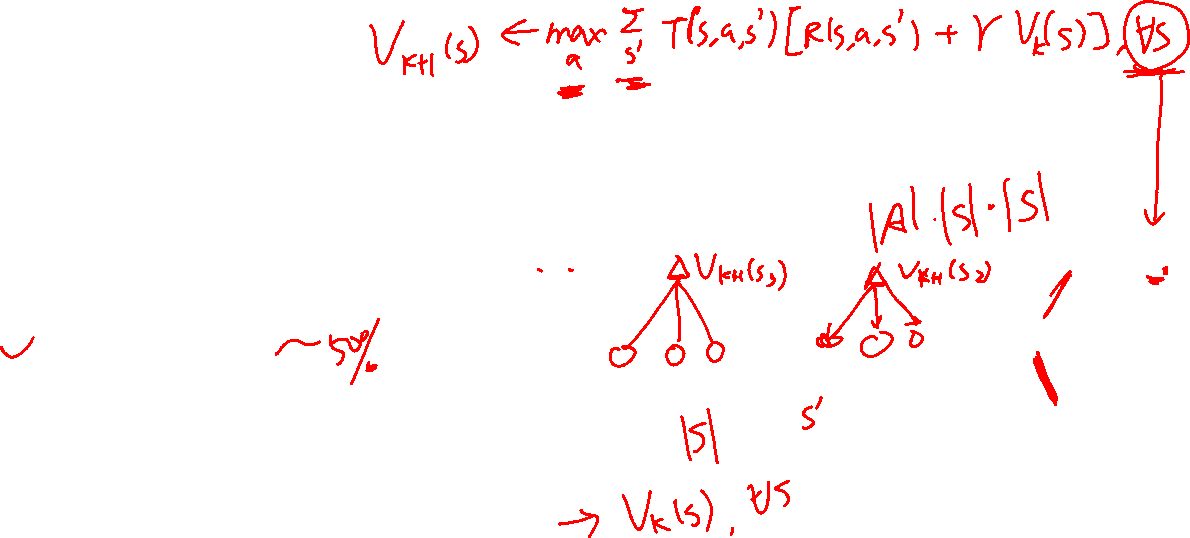 V_{k+1}(s) ← max_a Σ_{s'} T(s,a,s')[R(s,a,s') + γ V_k(s)], ∀s
|A|·|S|·|S|
.. V_{k+1}(s_3) V_{k+1}(s_2)
~50%
|S| s'
→ V_k(s), ∀s